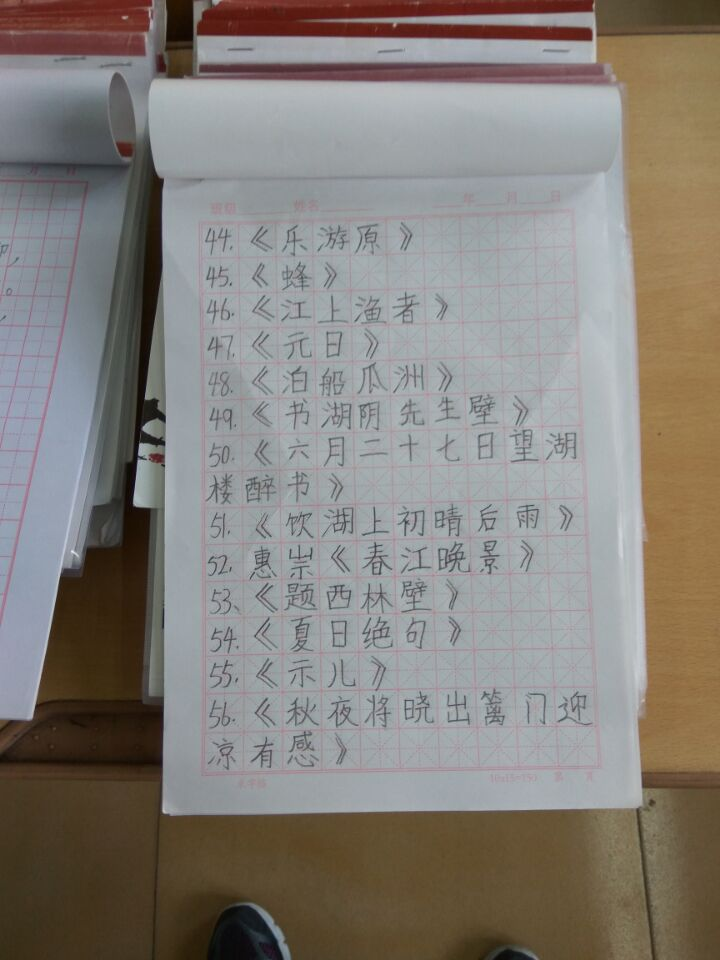 班级 姓名 年 月 日
44.《乐游原》
45.《蜂》
46.《江上渔者》
47.《元日》
48.《泊船瓜洲》
49.《书湖阴先生壁》
50.《六月二十七日望湖
楼醉书》
51.《饮湖上初晴后雨》
52.惠崇《春江晚景》
53、《题西林壁》
54.《夏日绝句》
55.《示儿》
56.《秋夜将晓出篱门迎
凉有感》
米字格 10x15=150 第 页
月 日